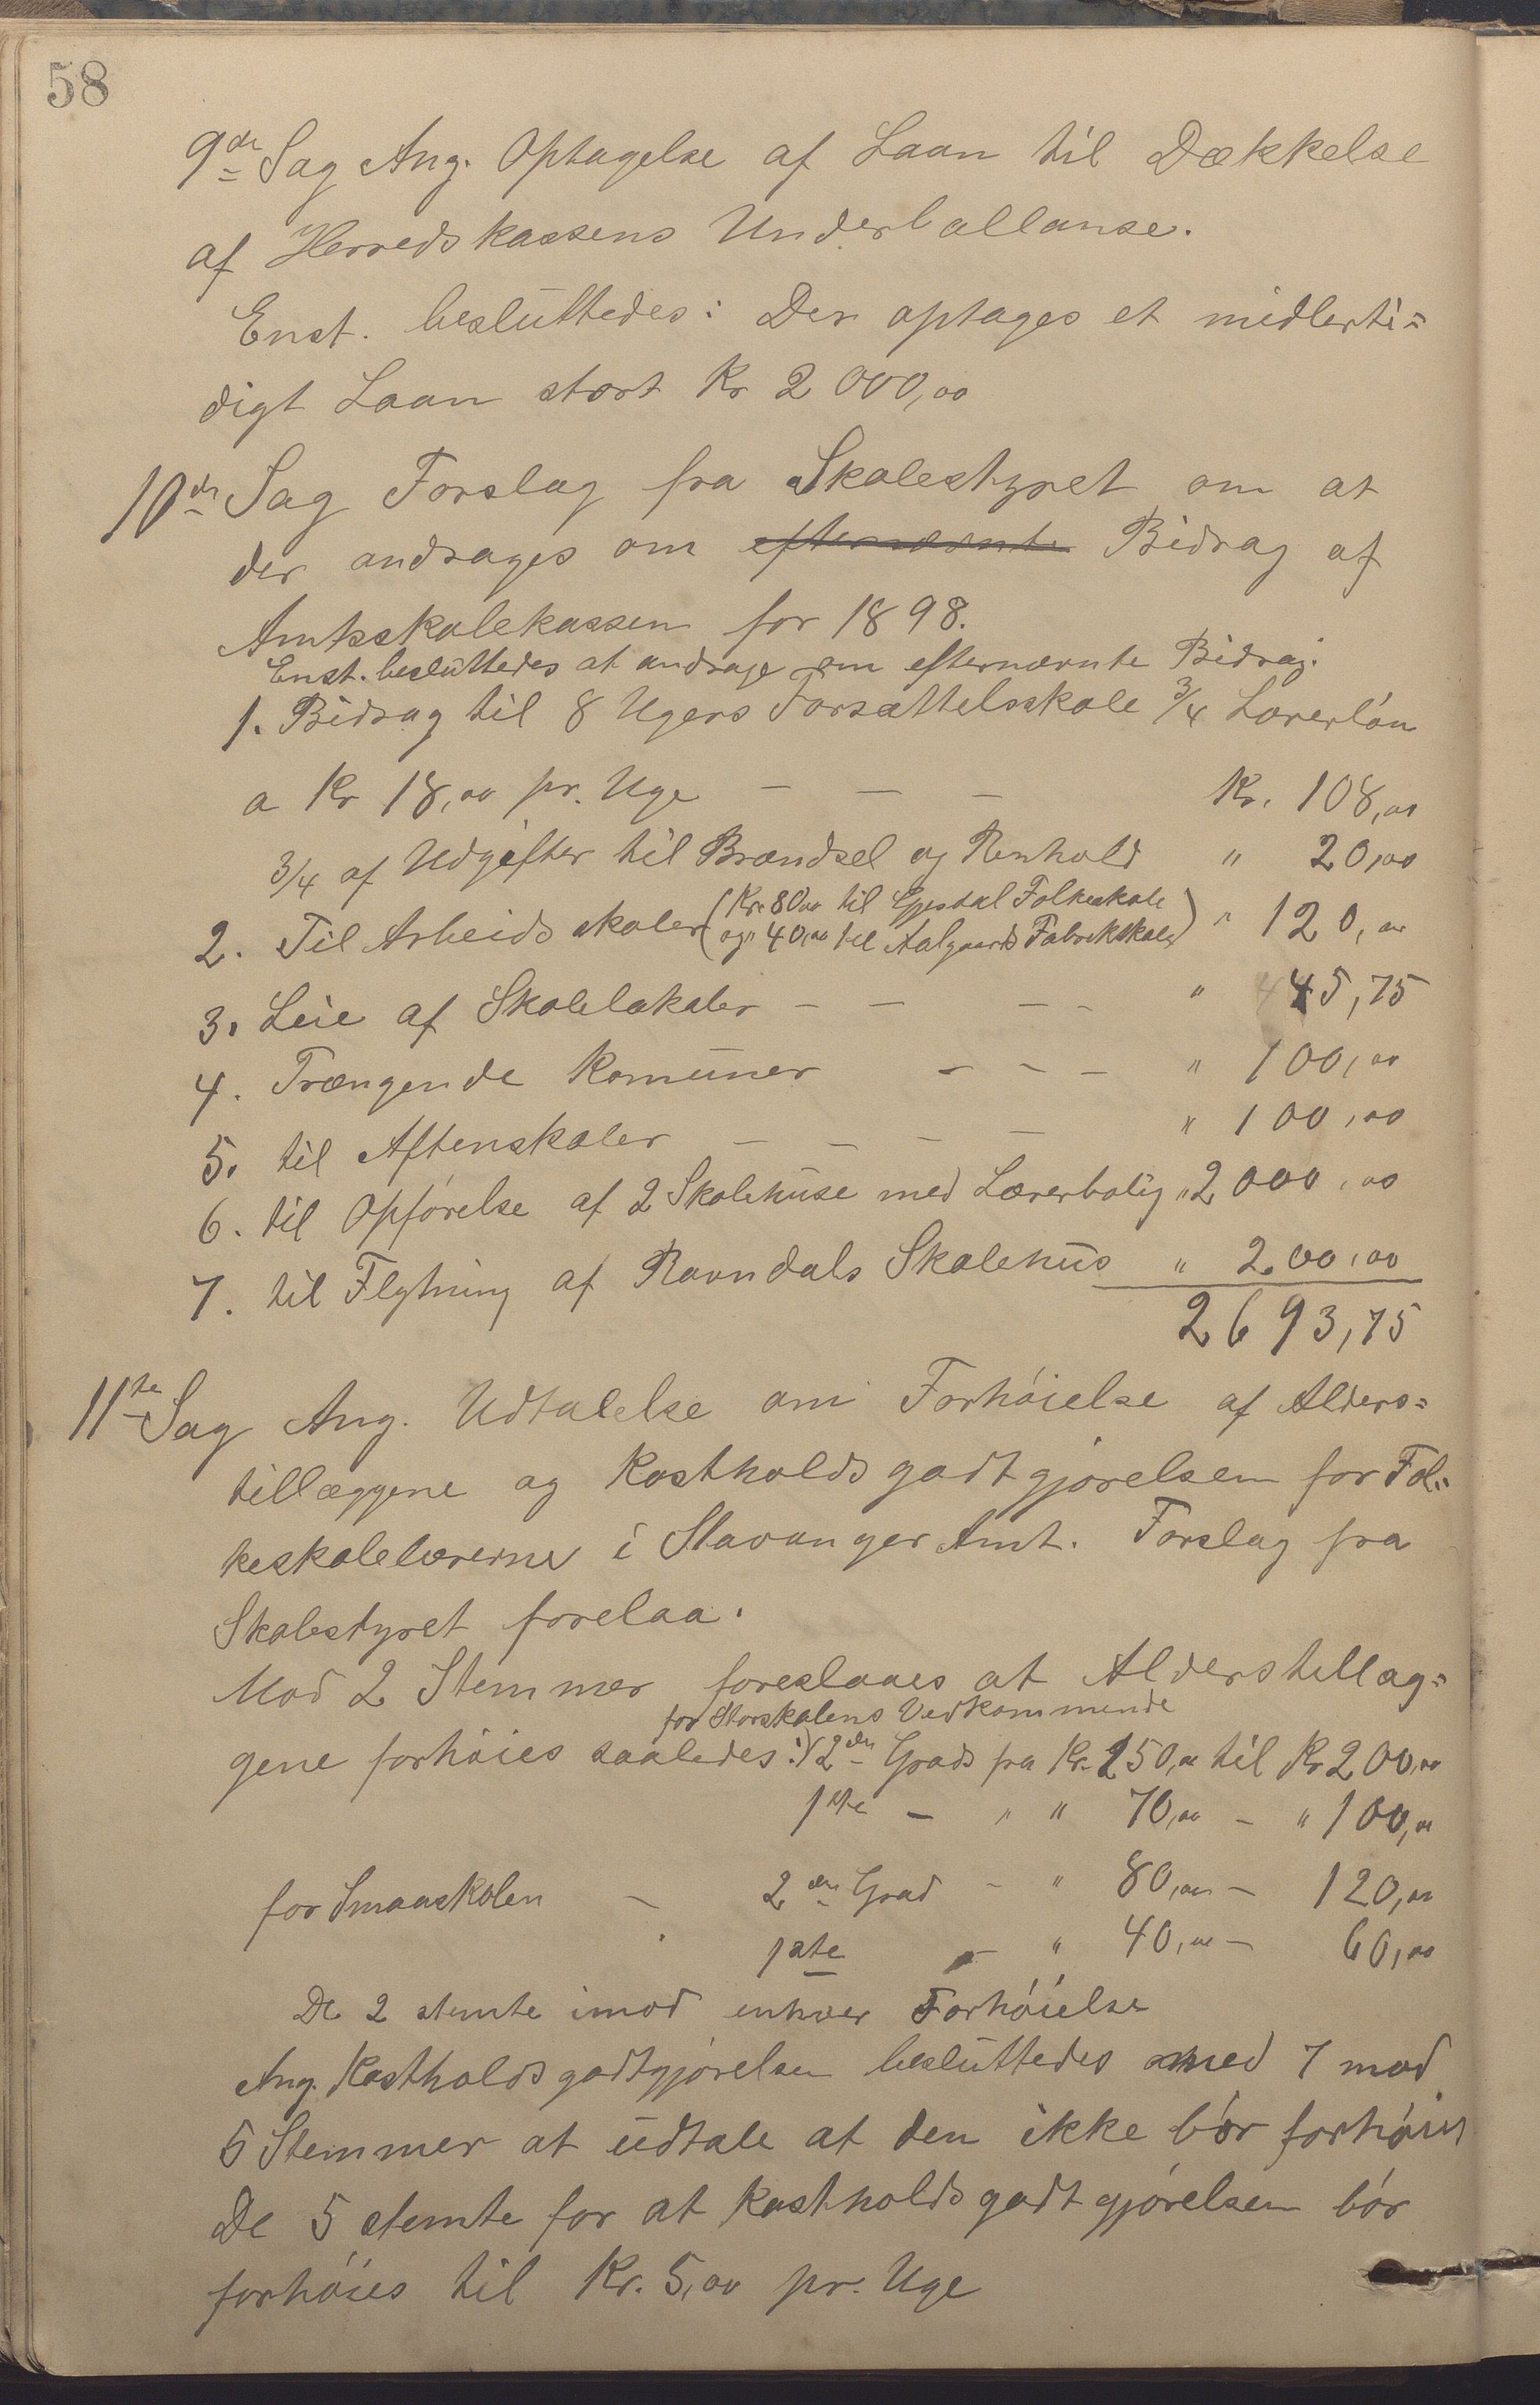 58
9de Sag Ang. Optagelse af Laan til Dækkelse
af Herredskassens Underballanse.
Enst. besluttedes: Der optages et midlerti=
digt Laan stort Kr 2000,00
10de Sag Forslag fra Skolestyret om at
der andrages om efternævnte Bidrag af
Amtsskolekassen for 1898.
Enst. besluttedes at andrage om efternævnte Bidrag.
1. Bidrag til 8 Ugers Forsættelsskole 3/4 Lærerløn
a Kr 18,00 pr. Uge — — — Kr. 108,00
3/4 af Udgifter til Brændsel og Renhold " 20,00
2. Til Arbeidsskoler (Kr. 80,00 til Gjesdal Folkeskole
og " 40,00 til Aalgaards Fabrikskole) " 120,00
3. Leie af Skolelokaler — — — — " 45,75
4. Trængende Komuner — — — " 100,00
5. til Aftenskoler — — — — " 100,00
6. til Opførelse af 2 Skolehuse med Lærerbolig " 2000,00
7. til Flytning af Ravndals Skolehus " 200,00
2693,75
11te Sag Ang. Udtalelse om Forhøielse af Alders=
tillæggene og Kostholdsgodtgjørelsen for Fol=
keskolelærerne i Stavanger Amt. Forslag fra
Skolestyret forelaa.
Mod 2 Stemmer foreslaaes at Alderstillæg=
for Storskolens Vedkommende
gene forhøies saaledes:) 2den Grads fra Kr. 150,00 til Kr 200,00
1ste — " " 70,00 — " 100,00
for Smaaskolen — 2den Grad — " 80,00 — 120,00
1ste — " 40,00 — 60,00
De 2 stemte imod enhver Forhøielse
Ang. Kostholdsgodtgjørelsen besluttedes med 7 mod
5 Stemmer at udtale at den ikke bør forhøies
De 5 stemte for at Kostholdsgodtgjørelsen bør
forhøies til Kr. 5,00 pr. Uge